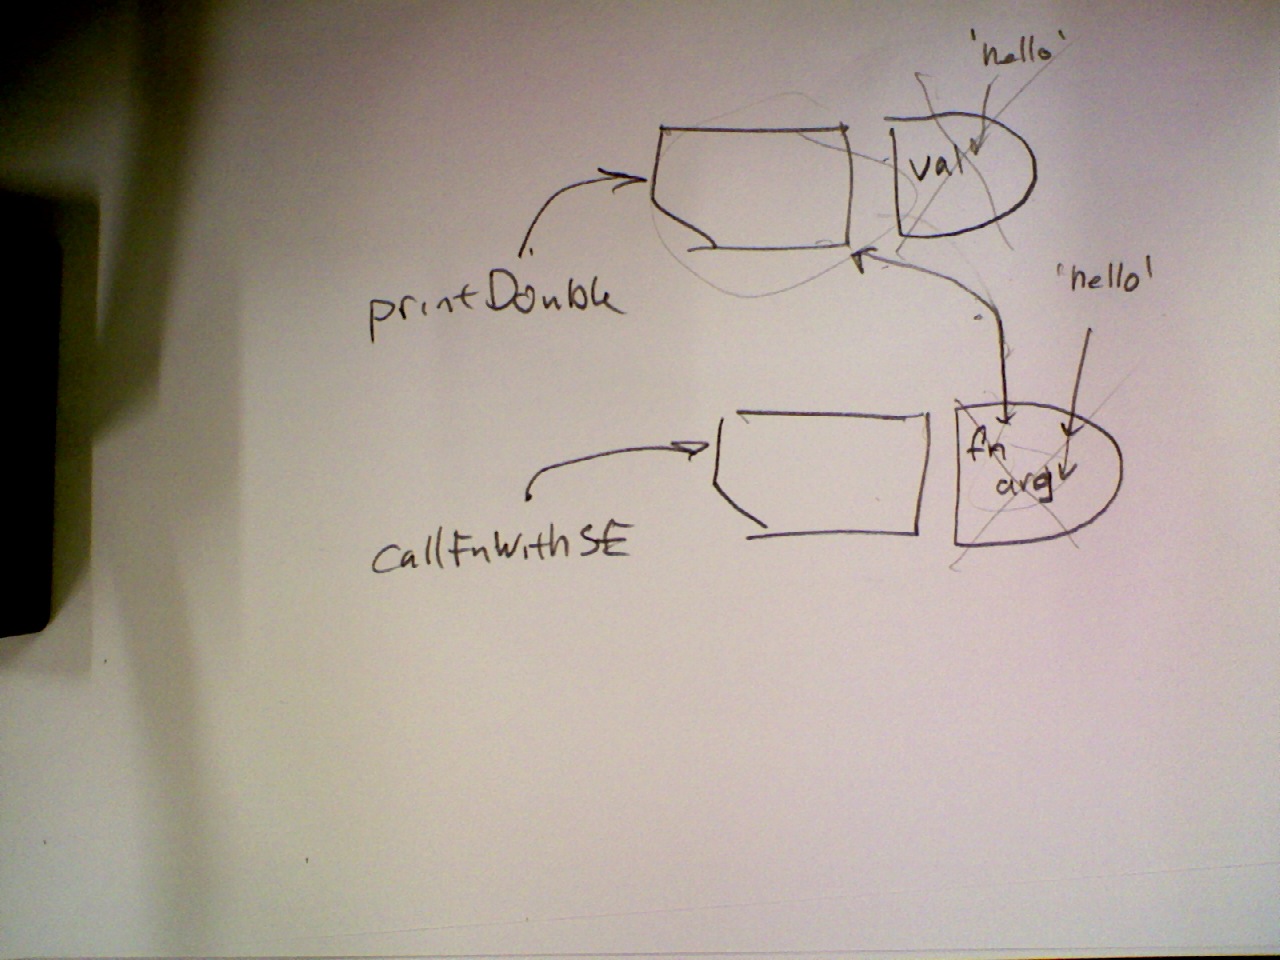 'hello'
val
printDouble
'hello'
fn
arg
callFnWithSE